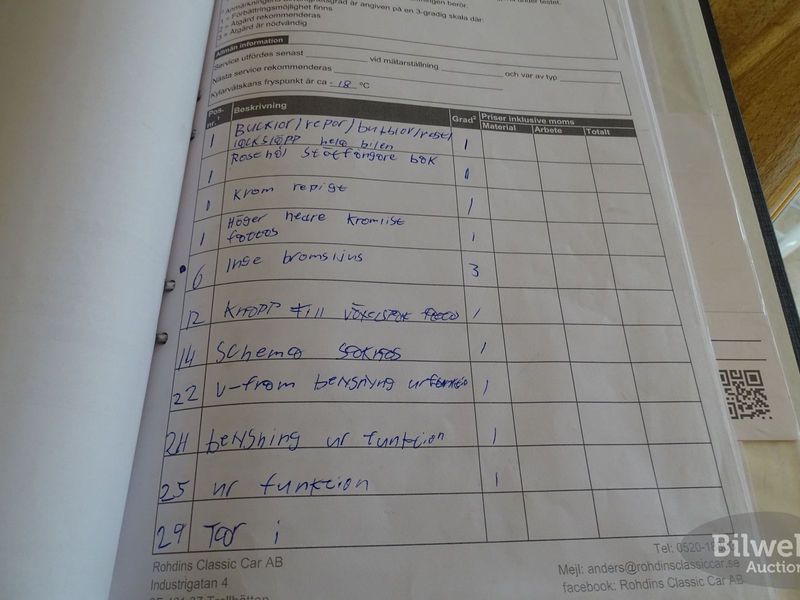 1 = Förbättringsmöjlighet finns
2 = Åtgärd rekommenderas
3 = Åtgärd är nödvändig
Allmän information
Service utfördes senast vid mätarställning och var av typ
Nästa service rekommenderas
Kylarvätskans fryspunkt är ca -18 °C
Pos. nr.¹ Beskrivning Grad² Priser inklusive moms
Material Arbete Totalt
1 Bucklor/repor/bubblor/rost/ 1
lacksläpp hela bilen
1 Rosthål stötfångare bak 1
1 Krom repigt 1
1 Höger nedre kromlist 1
6 Inge bromsljus 3
12 Knopp till växelspak 1
14 Schema saknas 1
22 V-fram belysning ur funktion 1
24 belysning ur funktion 1
25 ur funktion 1
29 Tar i
Rohdins Classic Car AB
Industrigatan 4
Tel: 0520-18
Mejl: anders@rohdinsclassiccar.se
facebook: Rohdins Classic Car AB
Bilweb
Auction